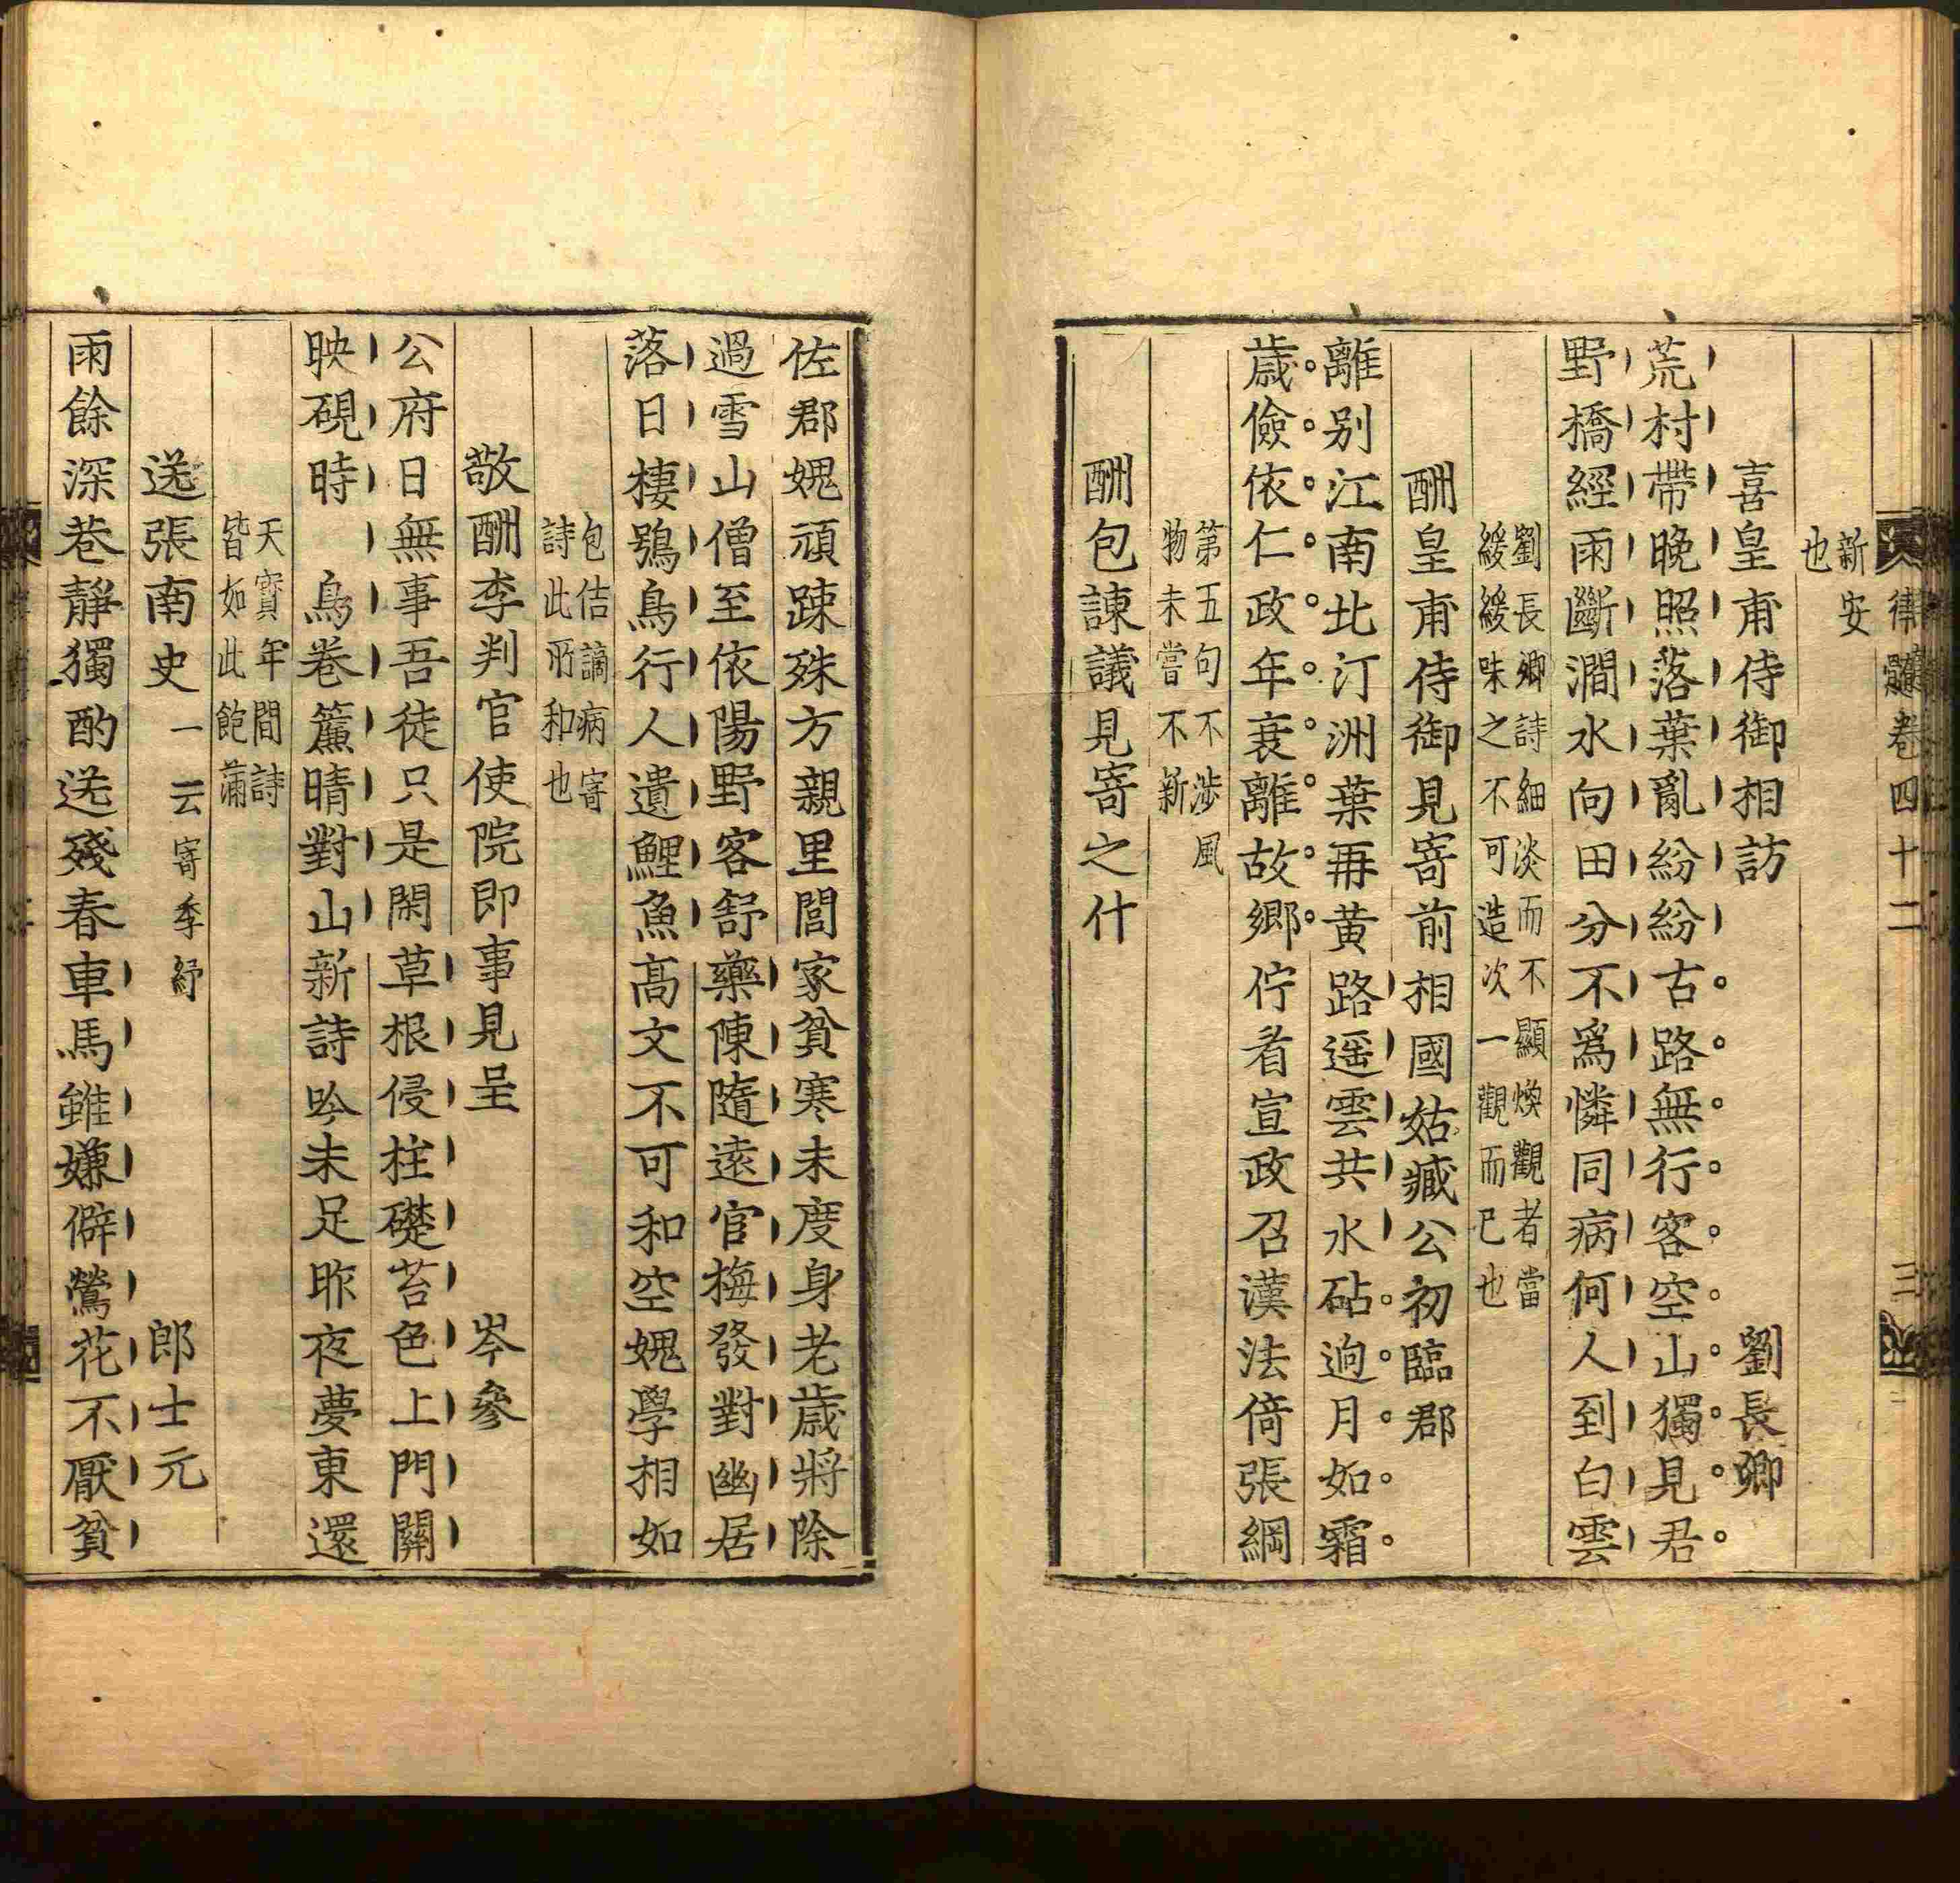 律髓卷四十二
三
新安
也
喜皇甫侍御相訪 劉長卿
荒村帶晚照落葉亂紛紛古路無行客空山獨見君
野橋經雨斷澗水向田分不爲憐同病何人到白雲
劉長卿詩細淡而不顯煥觀者當
緩緩味之不可造次一觀而已也
酬皇甫侍御見寄前相國姑臧公初臨郡
離别江南北汀洲葉再黄路遥雲共水砧逈月如霜
歳儉依仁政年衰離故鄉佇看宣政召漢法倚張綱
第五句不涉風
物未嘗不新
酬包諫議見寄之什
佐郡媿頑踈殊方親里閭家貧寒未度身老歳將除
過雪山僧至依陽野客舒藥陳隨遠官梅發對幽居
落日棲鴞鳥行人遺鯉魚高文不可和空媿學相如
包佶謫病寄
詩此所和也
敬酬李判官使院即事見呈 岑參
公府日無事吾徒只是閑草根侵柱礎苔色上門關
映硯時鳥卷簾晴對山新詩吟未足昨夜夢東還
天寶年間詩
皆如此飽滿
送張南史一云寄李紓 郎士元
雨餘深巷靜獨酌送殘春車馬雖嫌僻鶯花不厭貧